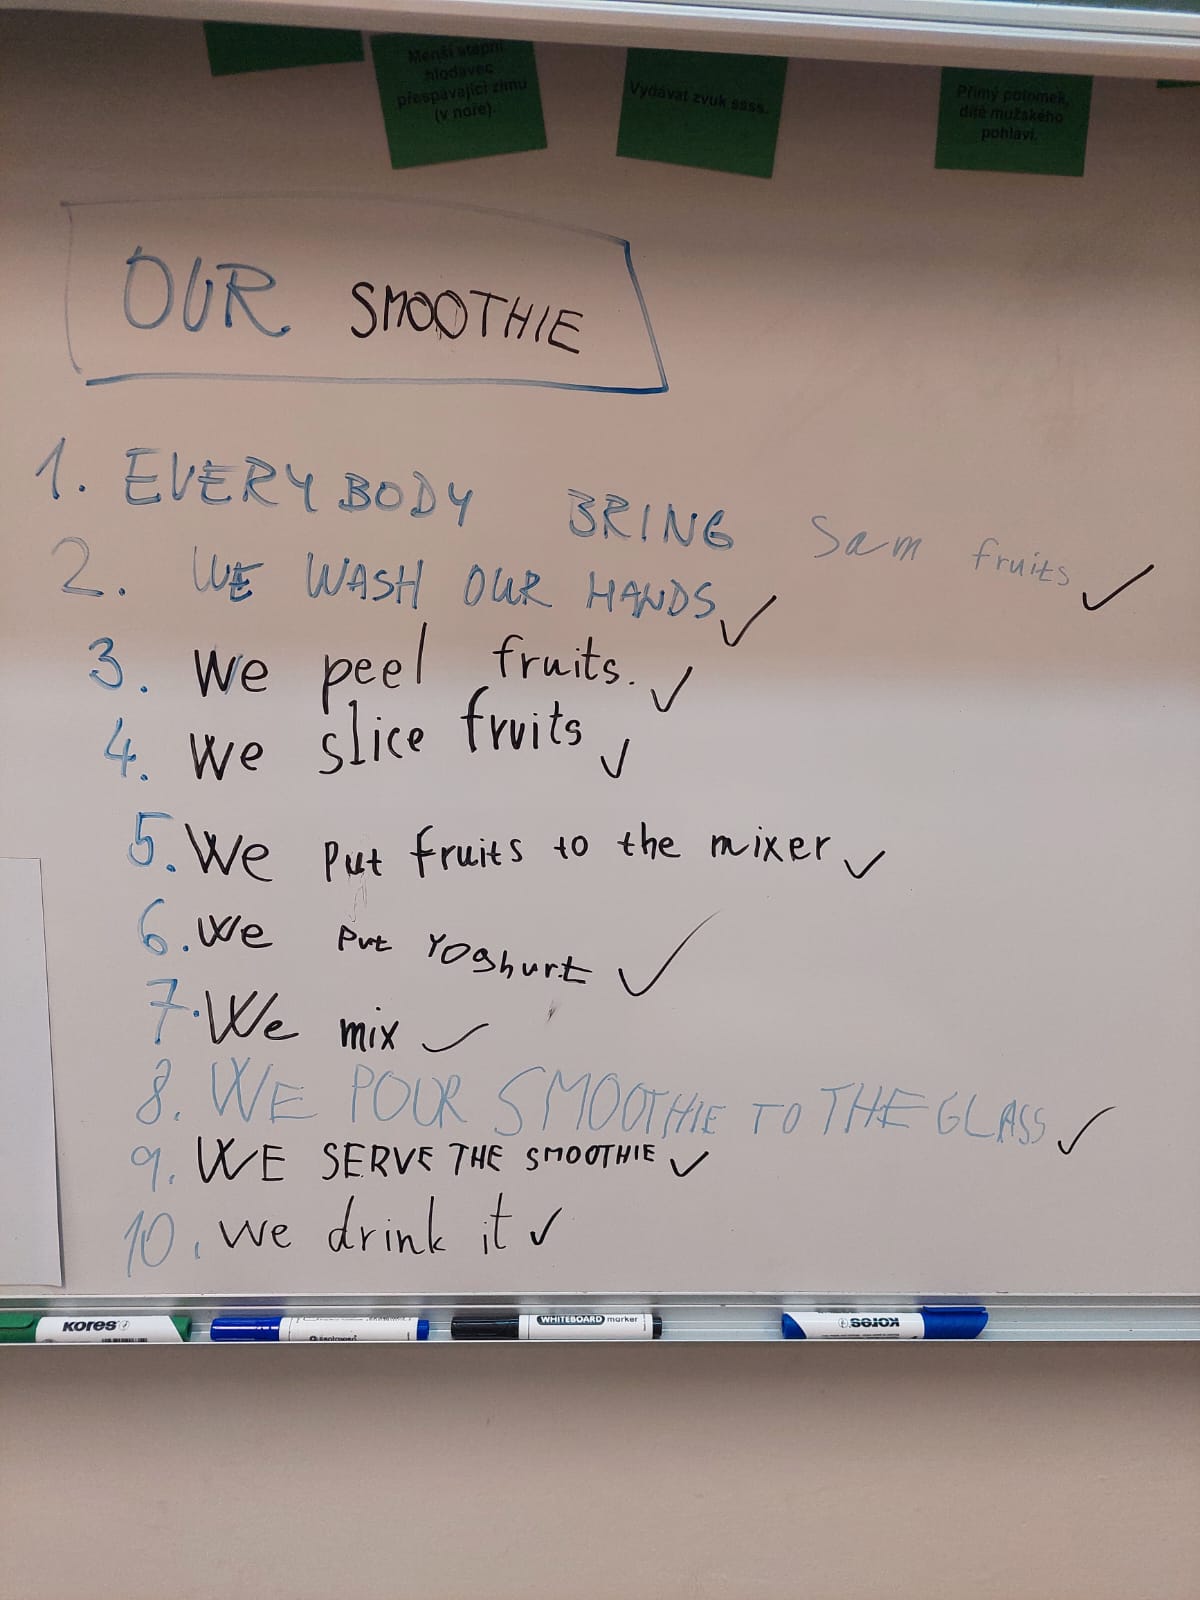 Menší stepní
hlodavec
přespávající zimu
(v noře).
Vydávat zvuk ssss.
Přímý potomek,
dítě mužského
pohlaví.
OUR SMOOTHIE
1. EVERYBODY BRING Sam fruits ✓
2. WE WASH OUR HANDS ✓
3. We peel fruits. ✓
4. We slice fruits ✓
5. We Put fruits to the mixer ✓
6. We Put Yoghurt ✓
7. We mix ✓
8. WE POUR SMOOTHIE TO THE GLASS ✓
9. WE SERVE THE SMOOTHIE ✓
10. we drink it ✓
KORES
WHITEBOARD marker
KORES